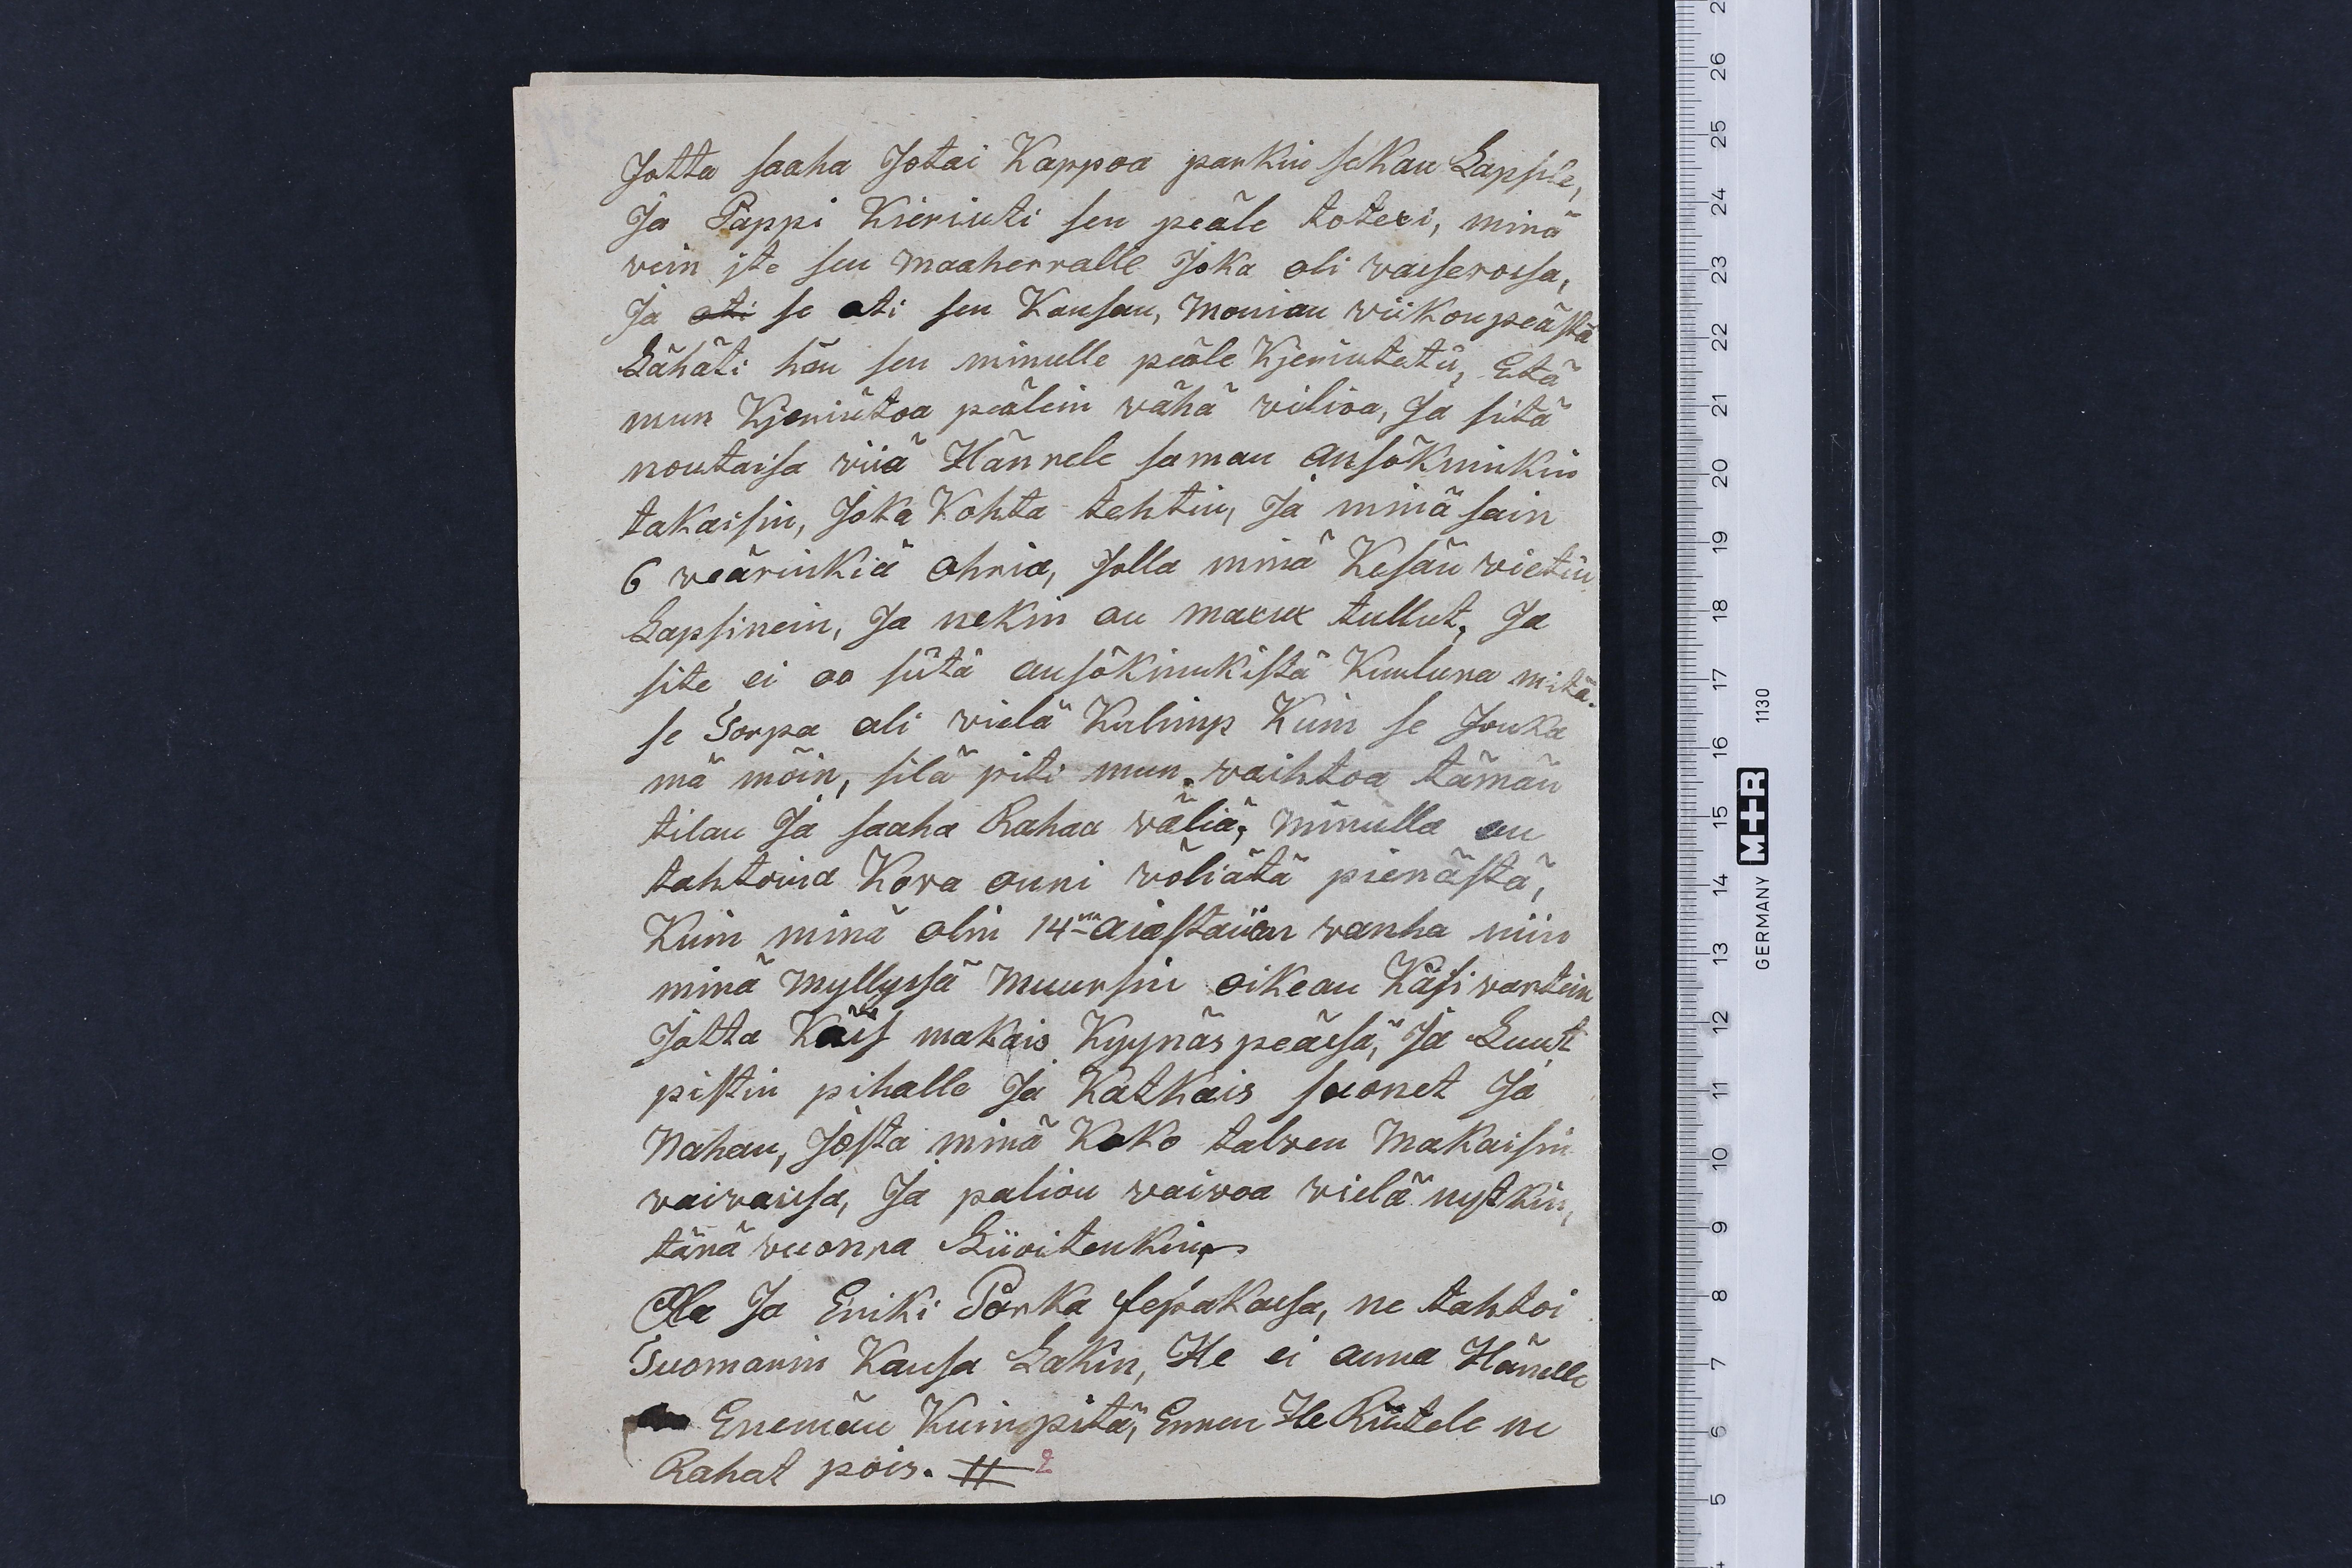 Jotta saaha Jotai Kappoa parkin sekau Lapsile,
Ja Pappi Kieriuti sen peäle totexi, minä
vein jte sen maaherralle Joka oli waserossa,
Ja oti se oti sen Kansau, Monian wiikon peästä
Lähäti hän sen minulle peäle Kjeriutetü, Etä
mun Kjeriutoa peälein vähä viliva, Ja sitä
noutaisa viiä Hännele saman ansökninkin
takaisin, Joka Kohta tehtin, Ja minä sain
6 veärinkiä Ohria, Jolla minä Kesän vietin
Lapsinein, Ja nekin on maxux tullut, Ja
site ei oo siitä ansökinnkistä Kuuluna mitä.
se Torpa oli vielä Kulimp Kuin se Jonka
mä möin, silä piti mun vaihtoa tämän
tilan Ja saaha Rahaa väliä; Minulla on
tahtonna Kova onni völiätä pienästä,
Kuin minä olin 14 aiastaiian vanha niin
minä Myllyssä Muursin oikean Käsi vartein
Jotta Käis makais Kyynäs peässä, Ja Luut
pistin pihalle Ja Katkais suonet Ja
Nahan, Josta minä Koko talven Makaisin
vaivaissa, Ja paliou vaivoa vielä nystkin,
tänä vuonna Liioitenkin,
Ola Ja Eriki Parka sepakassa, ne tahtoi
Tuomarin Kansa Lakin, He ei anna Hänelle
Enemän Kuin pitä, Ennen He Riitele ne
Rahat pois. # 2
26 25 24 23 22 21 20 19 18 17 16 15 14 13 12 11 10 9 8 7 6 5
GERMANY M+R 1130